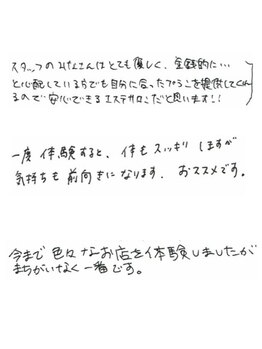 スタッフのみなさんはとても優しく、金銭的に…
と心配している方でも自分に合ったプランを提供してくれ
るので安心できるエステサロンだと思います!!
一度体験すると、体もスッキリしますが
気持ちも前向きになります。おススメです。
今まで色々なお店を体験しましたが
まちがいなく一番です。